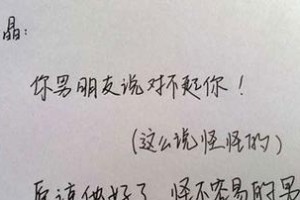 晶：
你男朋友说对不起你！
(这么说怪怪的)
原谅他好了 怪不容易的男